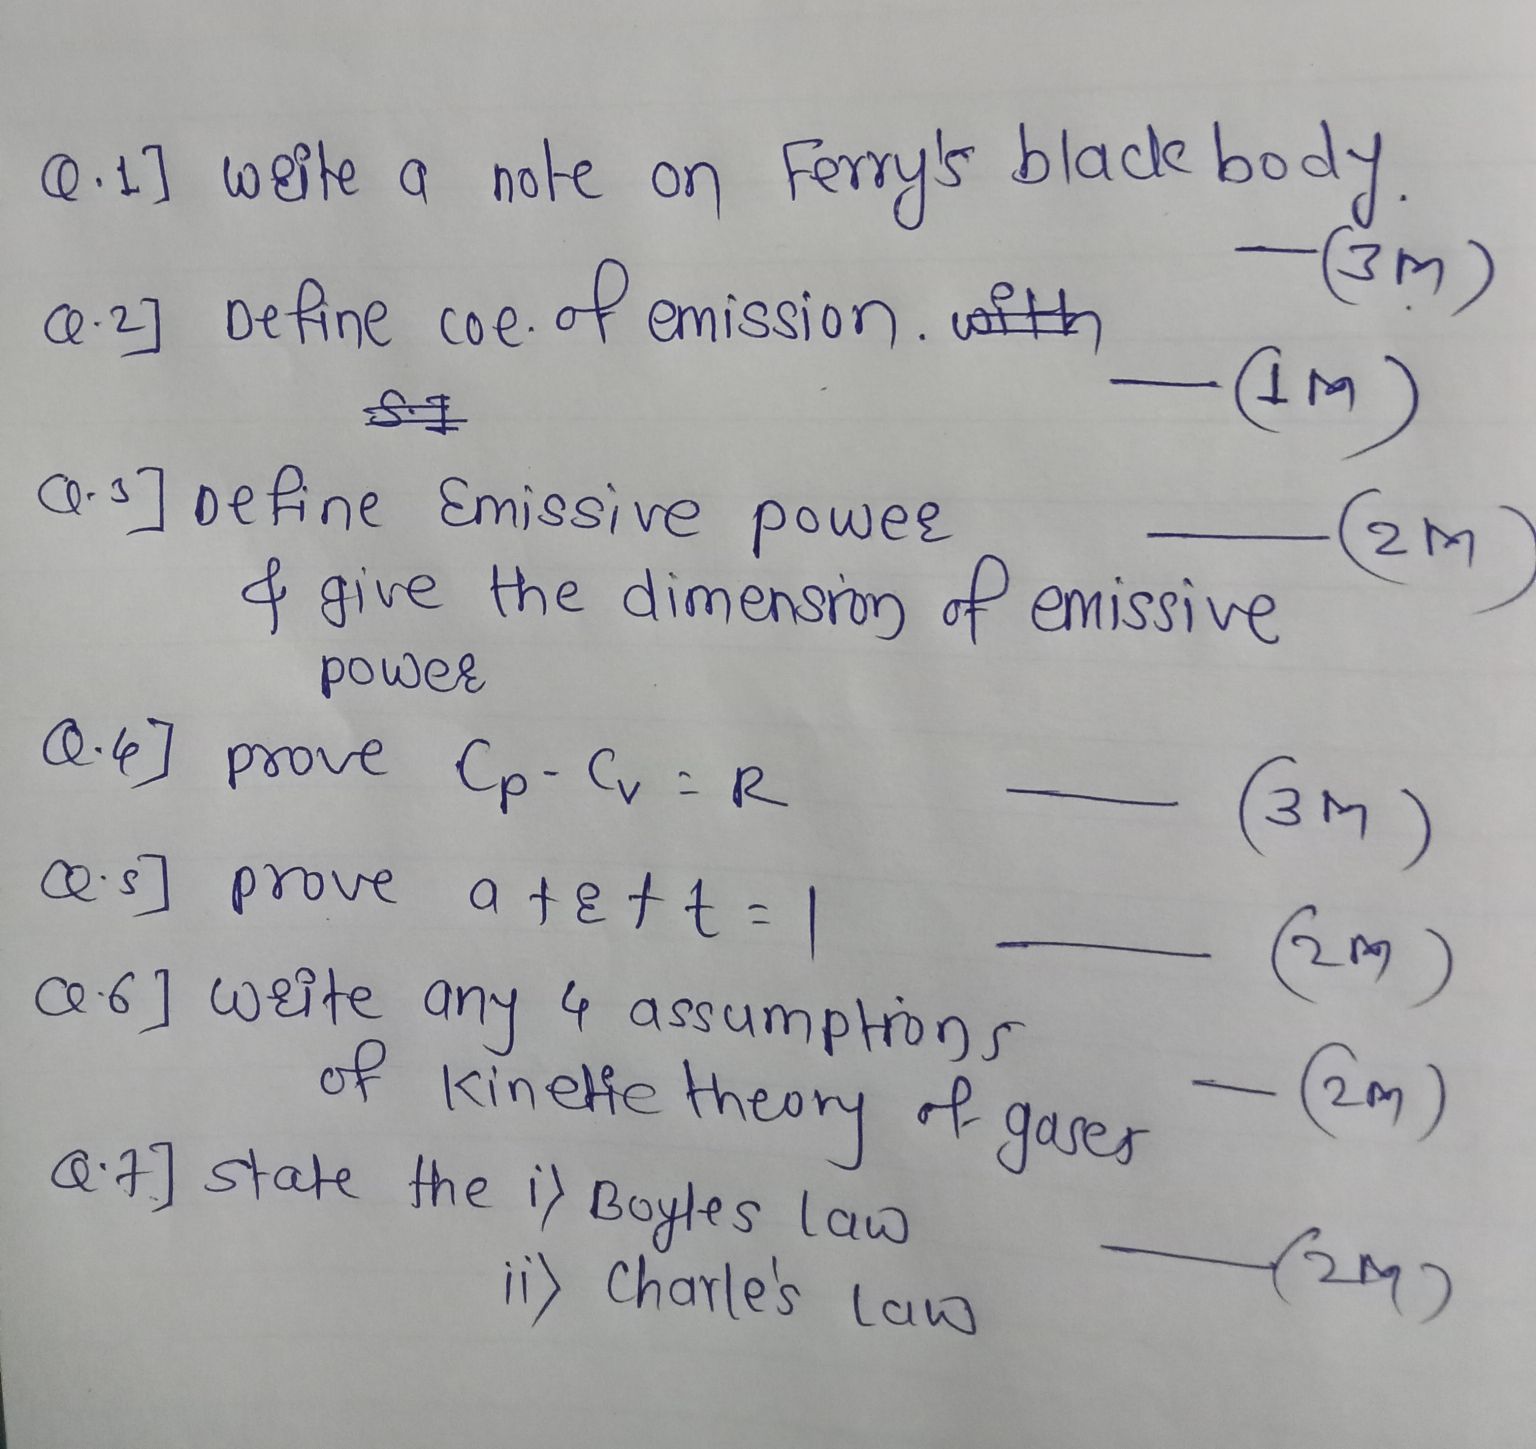 Q.1] write a note on Ferry's black body.
—(3M)
Q.2] Define coe. of emission. with
—(1M)
S.I
Q.3] Define Emissive power —(2M)
& give the dimension of emissive
power
Q.4] prove Cp - Cv = R — (3M)
Q.5] prove a + r + t = 1 — (2M)
Q.6] write any 4 assumptions
of kinetic theory of gases — (2M)
Q.7] state the i) Boyles law
ii) Charle's law —(2M)